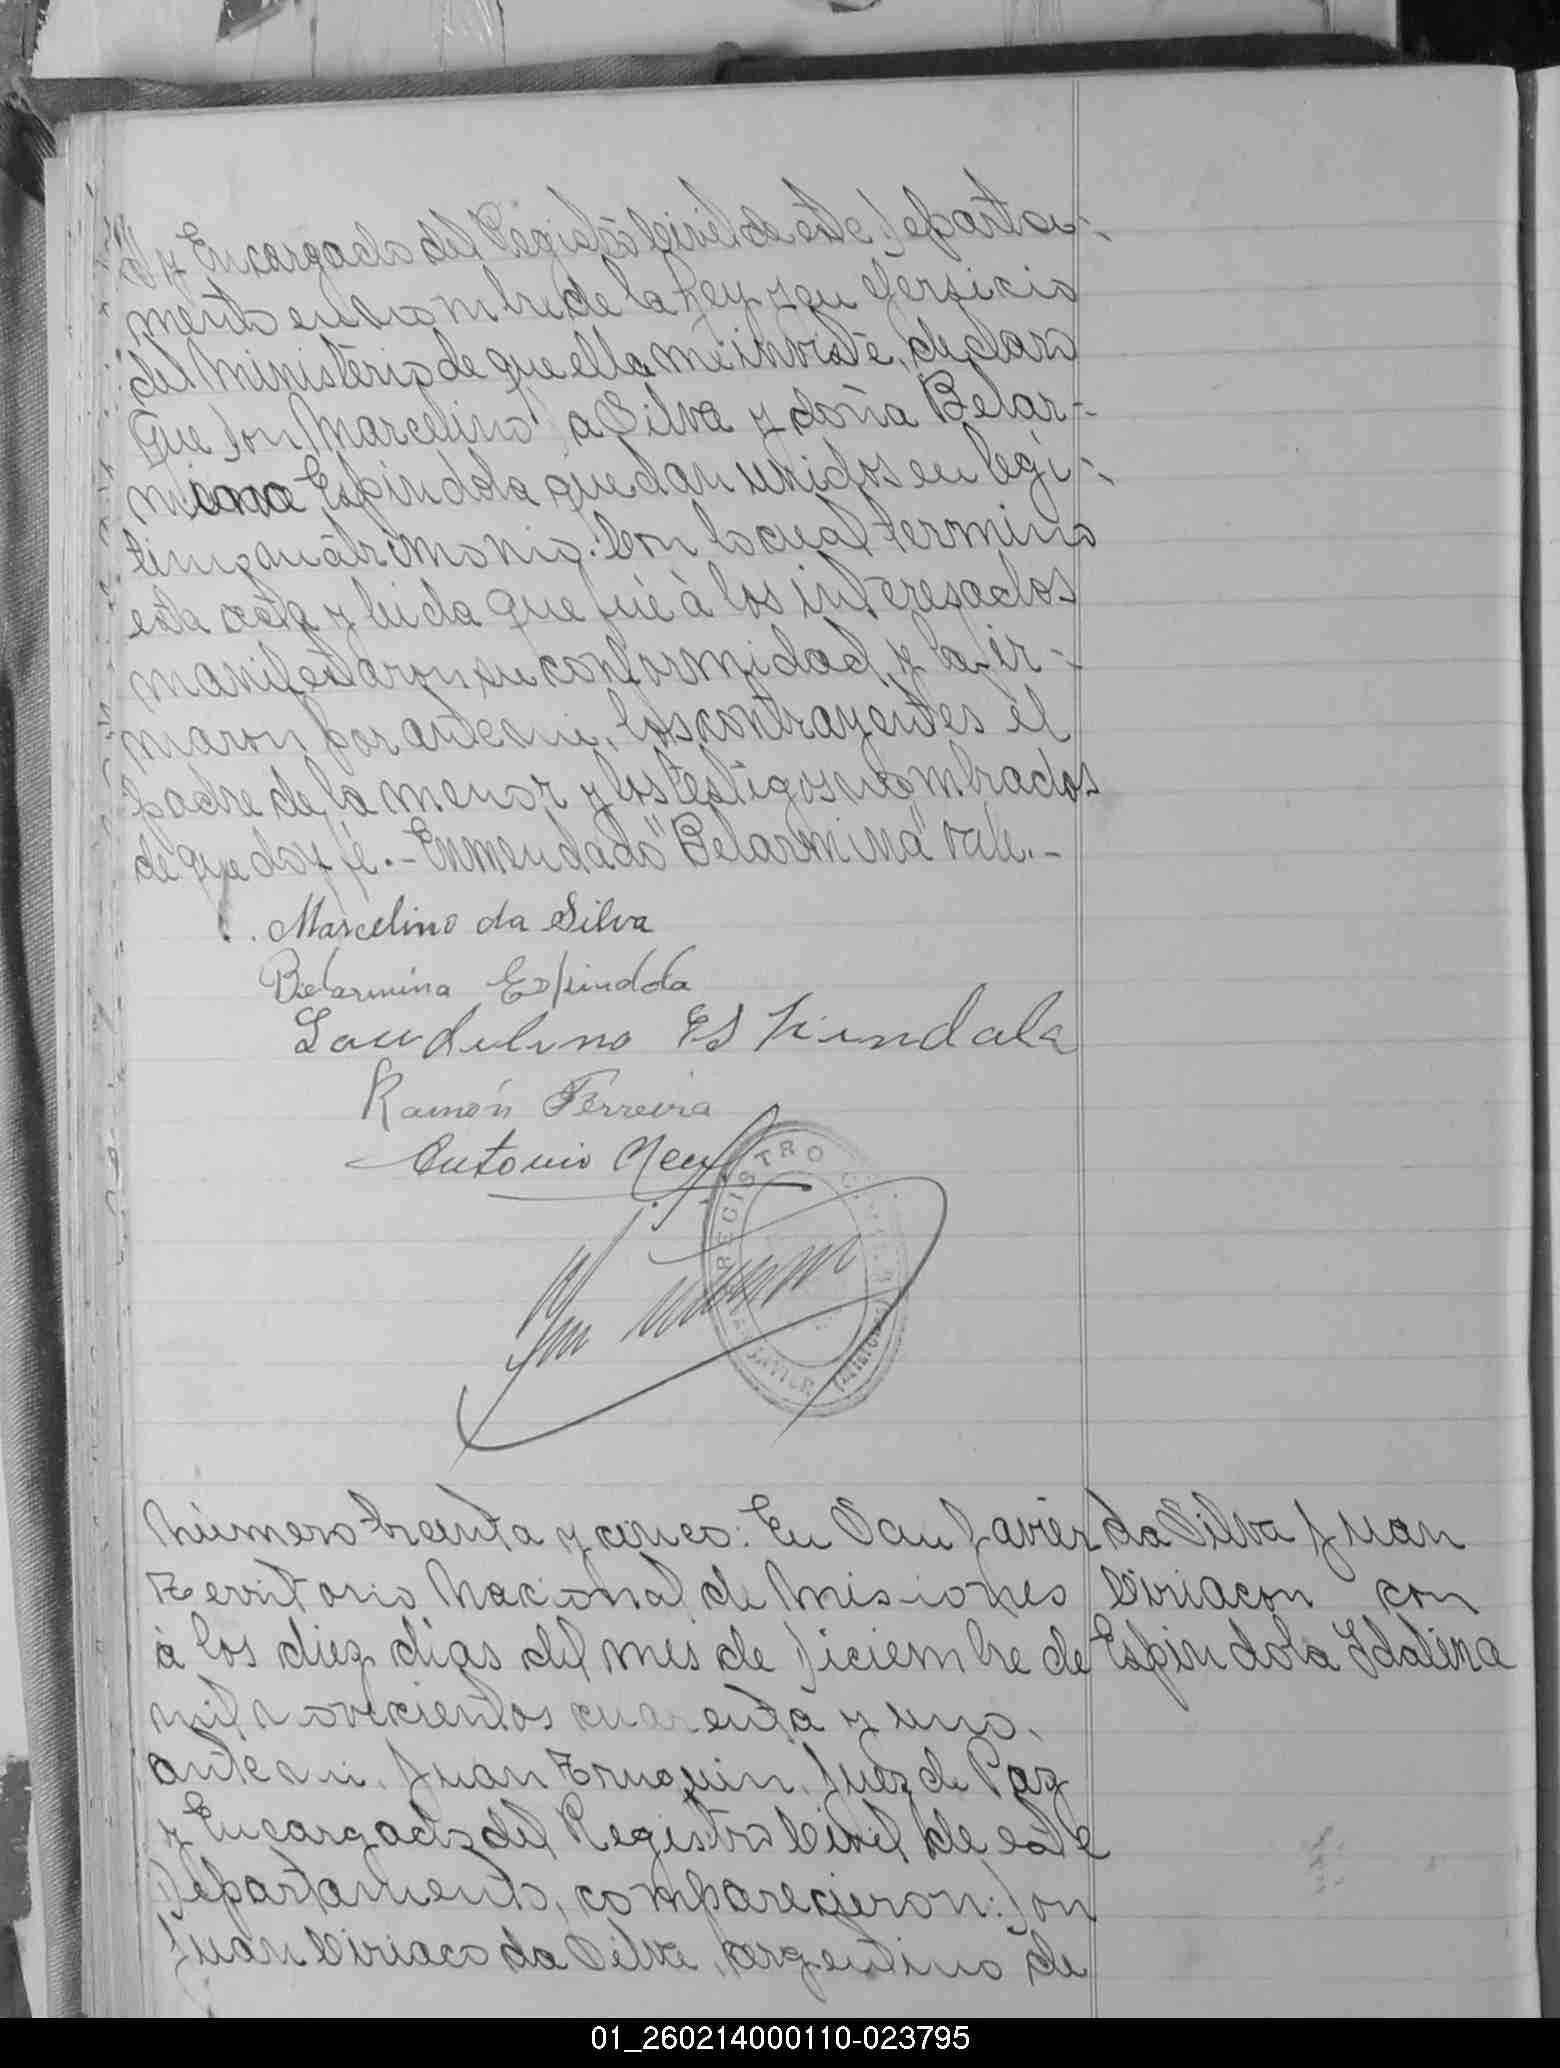 y Encargado del Registro Civil de este Departa-
mento en nombre de la Ley y en ejersicio
del Ministerio de que ella me inviste, declaro
Que Don Marcelino da Silva y doña Belar-
mina Espindola quedan unidos en legi-
timo matrimonio. Con lo cual termino
esta acta y leida que fué à los interesados
manifestaron su conformidad y la fir-
maron por ante mi, los contrayentes el
padre de la menor y los testigos nombrados
de que doy fé.- Enmendado "Belarmina" vale.-
Marcelino da Silva
Belarmina Espindola
Laudelino Espindala
Ramón Ferreira
Antonio
REGISTRO CIVIL
Número treinta y cinco: En San Javier
Territorio Nacional de Misiones
à los diez dias del mes de Diciembre de
mil novecientos cuarenta y uno,
ante mi, Juan Truquin, Juez de Paz
y Encargado del Registro Civil de este
Departamento, comparecieron: Don
Juan Ciriaco da Silva, argentino de
da Silva Juan
Ciriacon con
Espindola Idalina
01_260214000110-023795